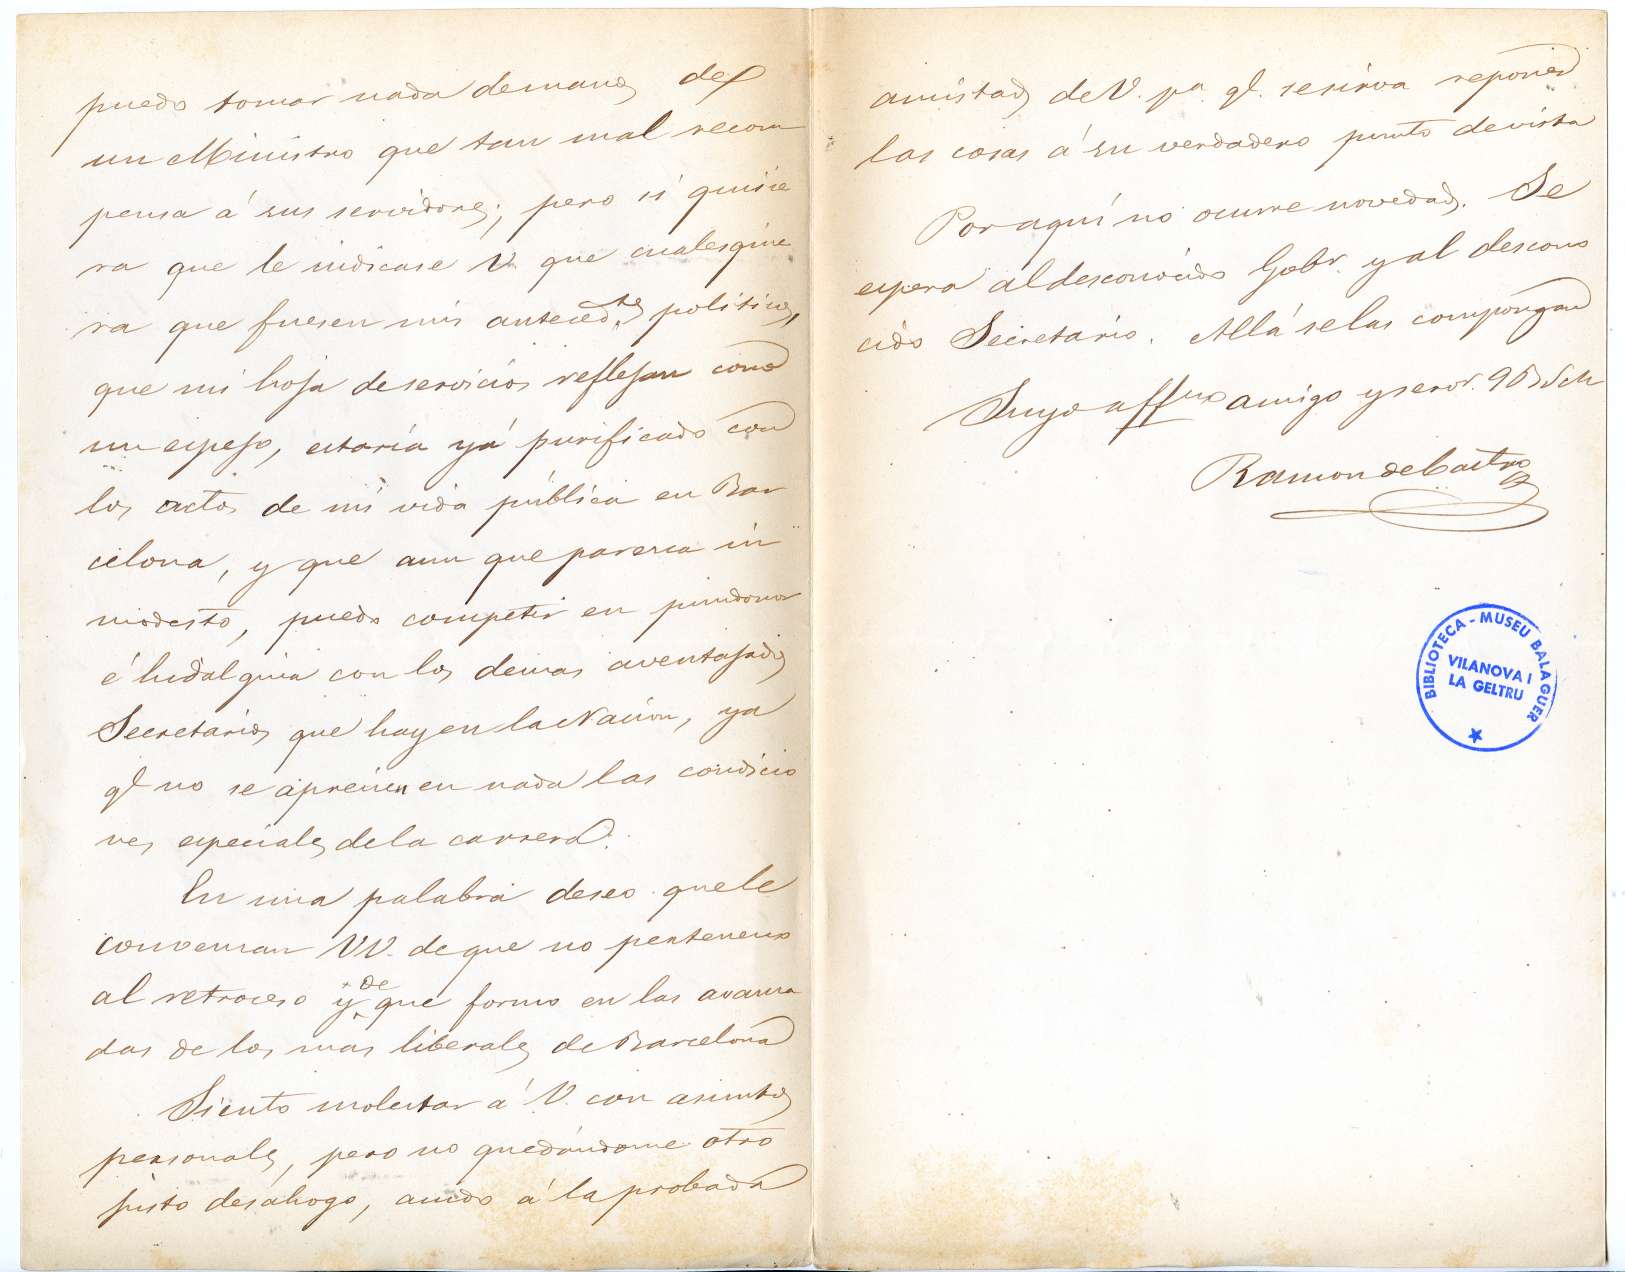 puedo tomar nada de manos de
un Ministro que tan mal recom
pensa á sus servidores; pero si quisie
ra que le indicase V. que cualesquie
ra que fuesen mis anteced.tes politicos,
que mi hoja de servicios reflejan como
un espejo, estaría yá purificado con
los actos de mi vida pública en Bar
celona, y que aun que parezca in
modesto, puedo competir en pundonor
é hidalguia con los demas aventajados
Secretarios que hay en la Nacion, ya
ql no se aprecien en nada las condicio
nes especiales de la carrera.
En una palabra deseo que le
convenzan VV. de que no pertenezco
al retroceso y de que formo en las avanza
das de los mas liberales de Barcelona
Siento molestar á V. con asuntos
personales, pero no quedándome otro
justo desahogo, acudo á la probada
amistad de V. pa. ql. se sirva reponer
las cosas á su verdadero punto de vista
Por aquí no ocurre novedad. Se
espera al desconocido Gobr. y al descono
cido Secretario. Allá se las compongan
Suyo affmo amigo y servr. q B S M
Ramon de Castro
BIBLIOTECA - MUSEU BALAGUER
VILANOVA I
LA GELTRU